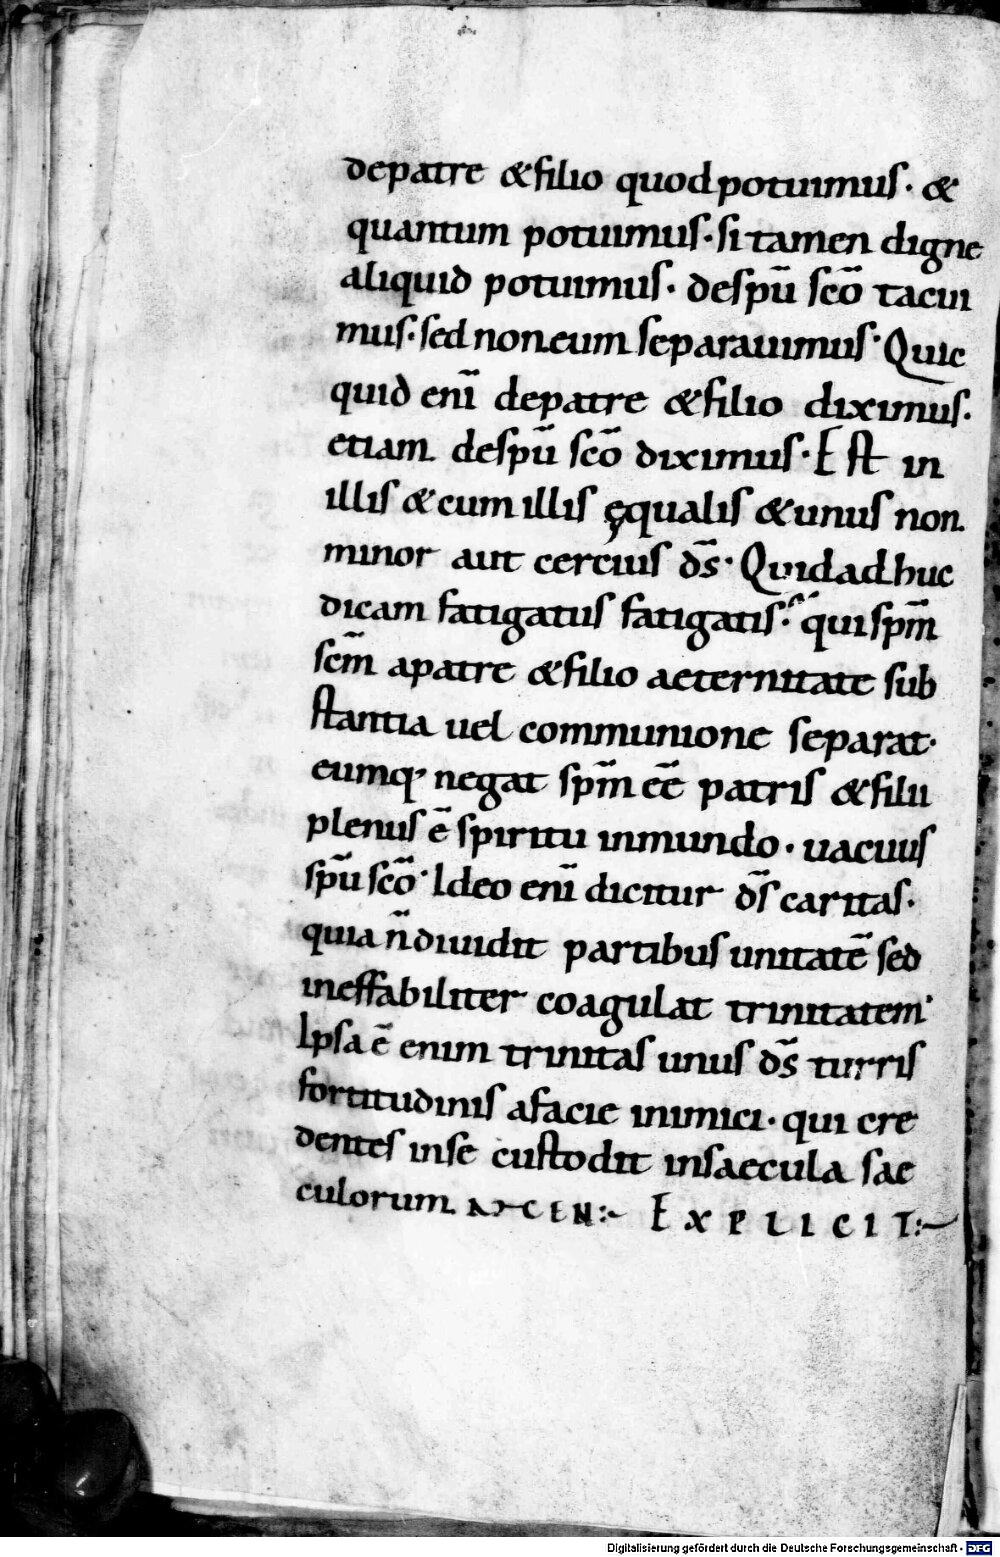 depatre &filio quod potuimus· &
quantum potuimus· si tamen digne
aliquid potuimus· despū scō tacui
mus· sed non eum separauimus· Quic
quid enī depatre &filio diximus·
etiam despū scō diximus· Est in
illis &cum illis ęqualis &unus non
minor aut tertius d̄s· Quid adhuc
dicam fatigatus fatigatis· qui sp̄m
sc̄m apatre &filio aeternitate sub
stantia uel communione separat·
eumq· negat sp̄m eē patris &filii
plenus ē spiritu inmundo· uacuus
spū scō· Ideo enī dicitur d̄s caritas·
quia n̄ diuidit partibus unitatē sed
ineffabiliter coagulat trinitatem·
Ipsa ē enim trinitas unus d̄s turris
fortitudinis afacie inimici· qui cre
dentes inse custodit insaecula sae
culorum AMEN:~ EXPLICIT:~
Digitalisierung gefördert durch die Deutsche Forschungsgemeinschaft - DFG